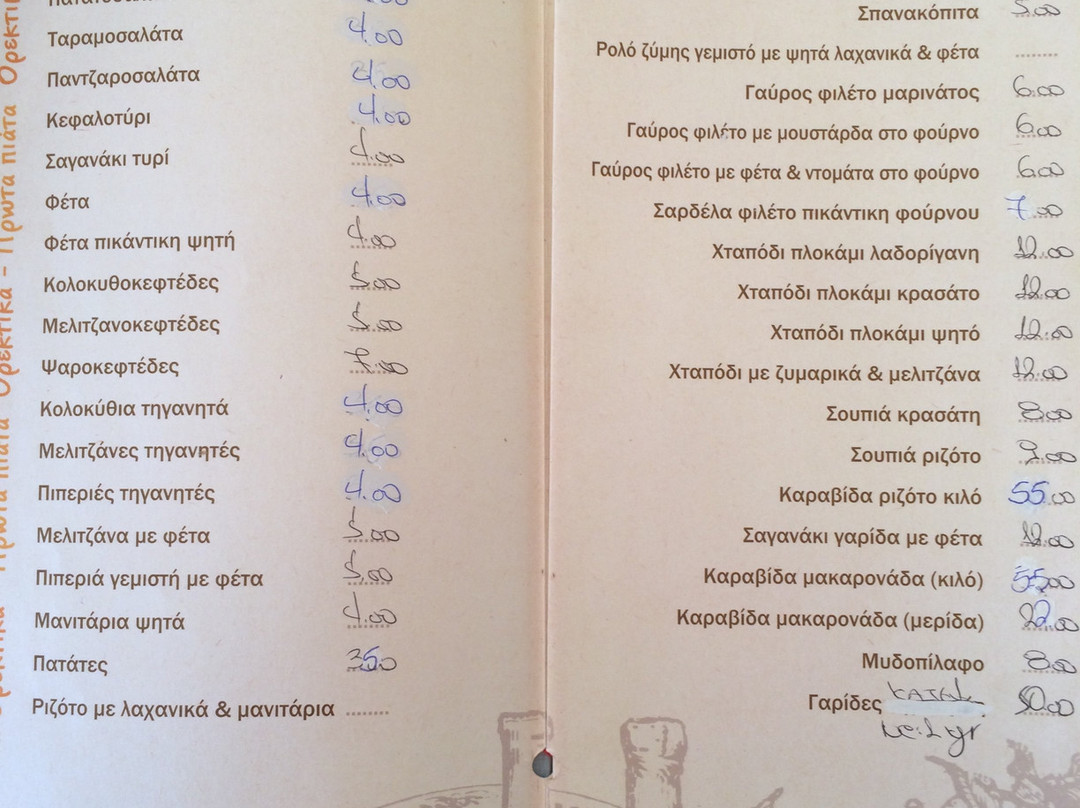 Ορεκτικά - Πρώτα πιάτα Ορεκτικά - Πρώτα πιάτα
Ταραμοσαλάτα 4.00
Παντζαροσαλάτα 4.00
Κεφαλοτύρι 4.00
Σαγανάκι τυρί 4.00
Φέτα 4.00
Φέτα πικάντικη ψητή 4.00
Κολοκυθοκεφτέδες 5.00
Μελιτζανοκεφτέδες 5.00
Ψαροκεφτέδες
Κολοκύθια τηγανητά 4.00
Μελιτζάνες τηγανητές 4.00
Πιπεριές τηγανητές 4.00
Μελιτζάνα με φέτα 5.00
Πιπεριά γεμιστή με φέτα 5.00
Μανιτάρια ψητά 4.00
Πατάτες 3.50
Ριζότο με λαχανικά & μανιτάρια ........
Σπανακόπιτα 5.00
Ρολό ζύμης γεμιστό με ψητά λαχανικά & φέτα ........
Γαύρος φιλέτο μαρινάτος 6.00
Γαύρος φιλέτο με μουστάρδα στο φούρνο 6.00
Γαύρος φιλέτο με φέτα & ντομάτα στο φούρνο 6.00
Σαρδέλα φιλέτο πικάντικη φούρνου 7.00
Χταπόδι πλοκάμι λαδορίγανη 12.00
Χταπόδι πλοκάμι κρασάτο 12.00
Χταπόδι πλοκάμι ψητό 12.00
Χταπόδι με ζυμαρικά & μελιτζάνα 12.00
Σουπιά κρασάτη 8.00
Σουπιά ριζότο 9.00
Καραβίδα ριζότο κιλό 55.00
Σαγανάκι γαρίδα με φέτα 12.00
Καραβίδα μακαρονάδα (κιλό) 55.00
Καραβίδα μακαρονάδα (μερίδα) 22.00
Μυδοπίλαφο 8.00
Γαρίδες